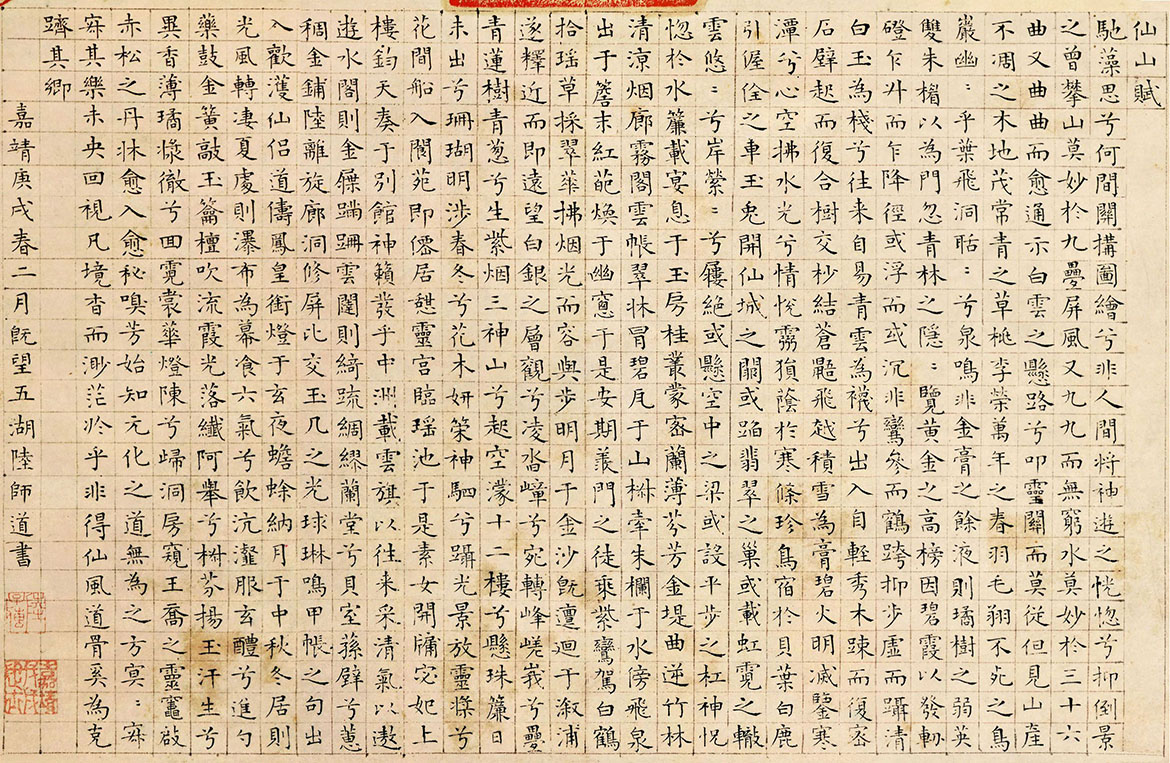 仙山賦
馳藻思兮何間關構圖繪兮非人間將神遊之恍惚兮抑倒景
之曾攀山莫妙於九疊屏風又九九而無窮水莫妙於三十六
曲又曲曲而愈通示白雲之懸路兮叩靈關而莫從但見山產
不凋之木地茂常青之草桃李榮萬年之春羽毛翔不死之鳥
巖幽〻乎葉飛洞聒〻兮泉鳴非金膏之餘液則璚樹之弱英
雙朱楣以為門忽青林之隱〻覽黃金之高榜因碧霞以發軔
磴乍升而乍降徑或浮而或沉非鸞參而鶴跨抑步虛而躡清
白玉為棧兮往来自易青雲為襪兮出入自輕秀木踈而復密
石壁起而復合樹交杪結蒼鼯飛越積雪為膏碧火明滅鑒寒
潭兮心空拂水光兮情悅霧獏蔭於寒條珍鳥宿於貝葉白鹿
引偓佺之車玉兔開仙城之闕或蹈翡翠之巢或載虹霓之轍
雲悠〻兮岸縈〻兮屨絕或懸空中之梁或設平步之杠神怳
惚於水簾載宴息于玉房桂叢蒙密蘭薄芬芳金堤曲逆竹林
清涼烟廊霧閣雲帳翠牀冒碧瓦于山椒牽朱欄于水傍飛泉
出于簷末紅葩煥于幽窻于是安期羨門之徒乘紫鸞駕白鶴
拾瑶草採翠華拂烟光而容與步明月于金沙旣邅迴于溆浦
遂釋近而即遠望白銀之層觀兮凌沓嶂兮宛轉峰嵯峩兮疊
青蓮樹青蔥兮生紫烟三神山兮起空濛十二樓兮懸珠簾日
未出兮珊瑚明涉春冬兮花木妍策神駟兮躡光景放靈槎兮
花間船入閬苑即僊居憇靈宮臨瑶池于是素女開牖宓妃上
樓鈞天奏于別館神籟發乎中洲載雲旗以往来采清氣以遨
遊水閣則金鑠蹣跚雲闥則綺疏綢繆蘭堂兮貝室蓀壁兮蕙
稠金鋪陸離旋廊洞修屏比交玉几之光球琳鳴甲帳之句出
入歡濩仙侶道儔鳳皇銜燈于玄夜蟾蜍納月于中秋冬居則
光風轉凄夏處則瀑布為幕飡六氣兮飲沆瀣服玄醴兮進勺
藥鼓金簧敲玉籥檀吹流霞光落纖阿舉兮椒芬揚玉汗生兮
異香薄璚滌徹兮曳霓裳華燈陳兮歸洞房窺王喬之靈竈啟
赤松之丹牀愈入愈秘嗅芳始知元化之道無為之方寞〻寂
寂其樂未央回視凡境杳而渺茫於乎非得仙風道骨奚為克
躋其鄉
嘉靖庚戌春二月旣望五湖陸師道書